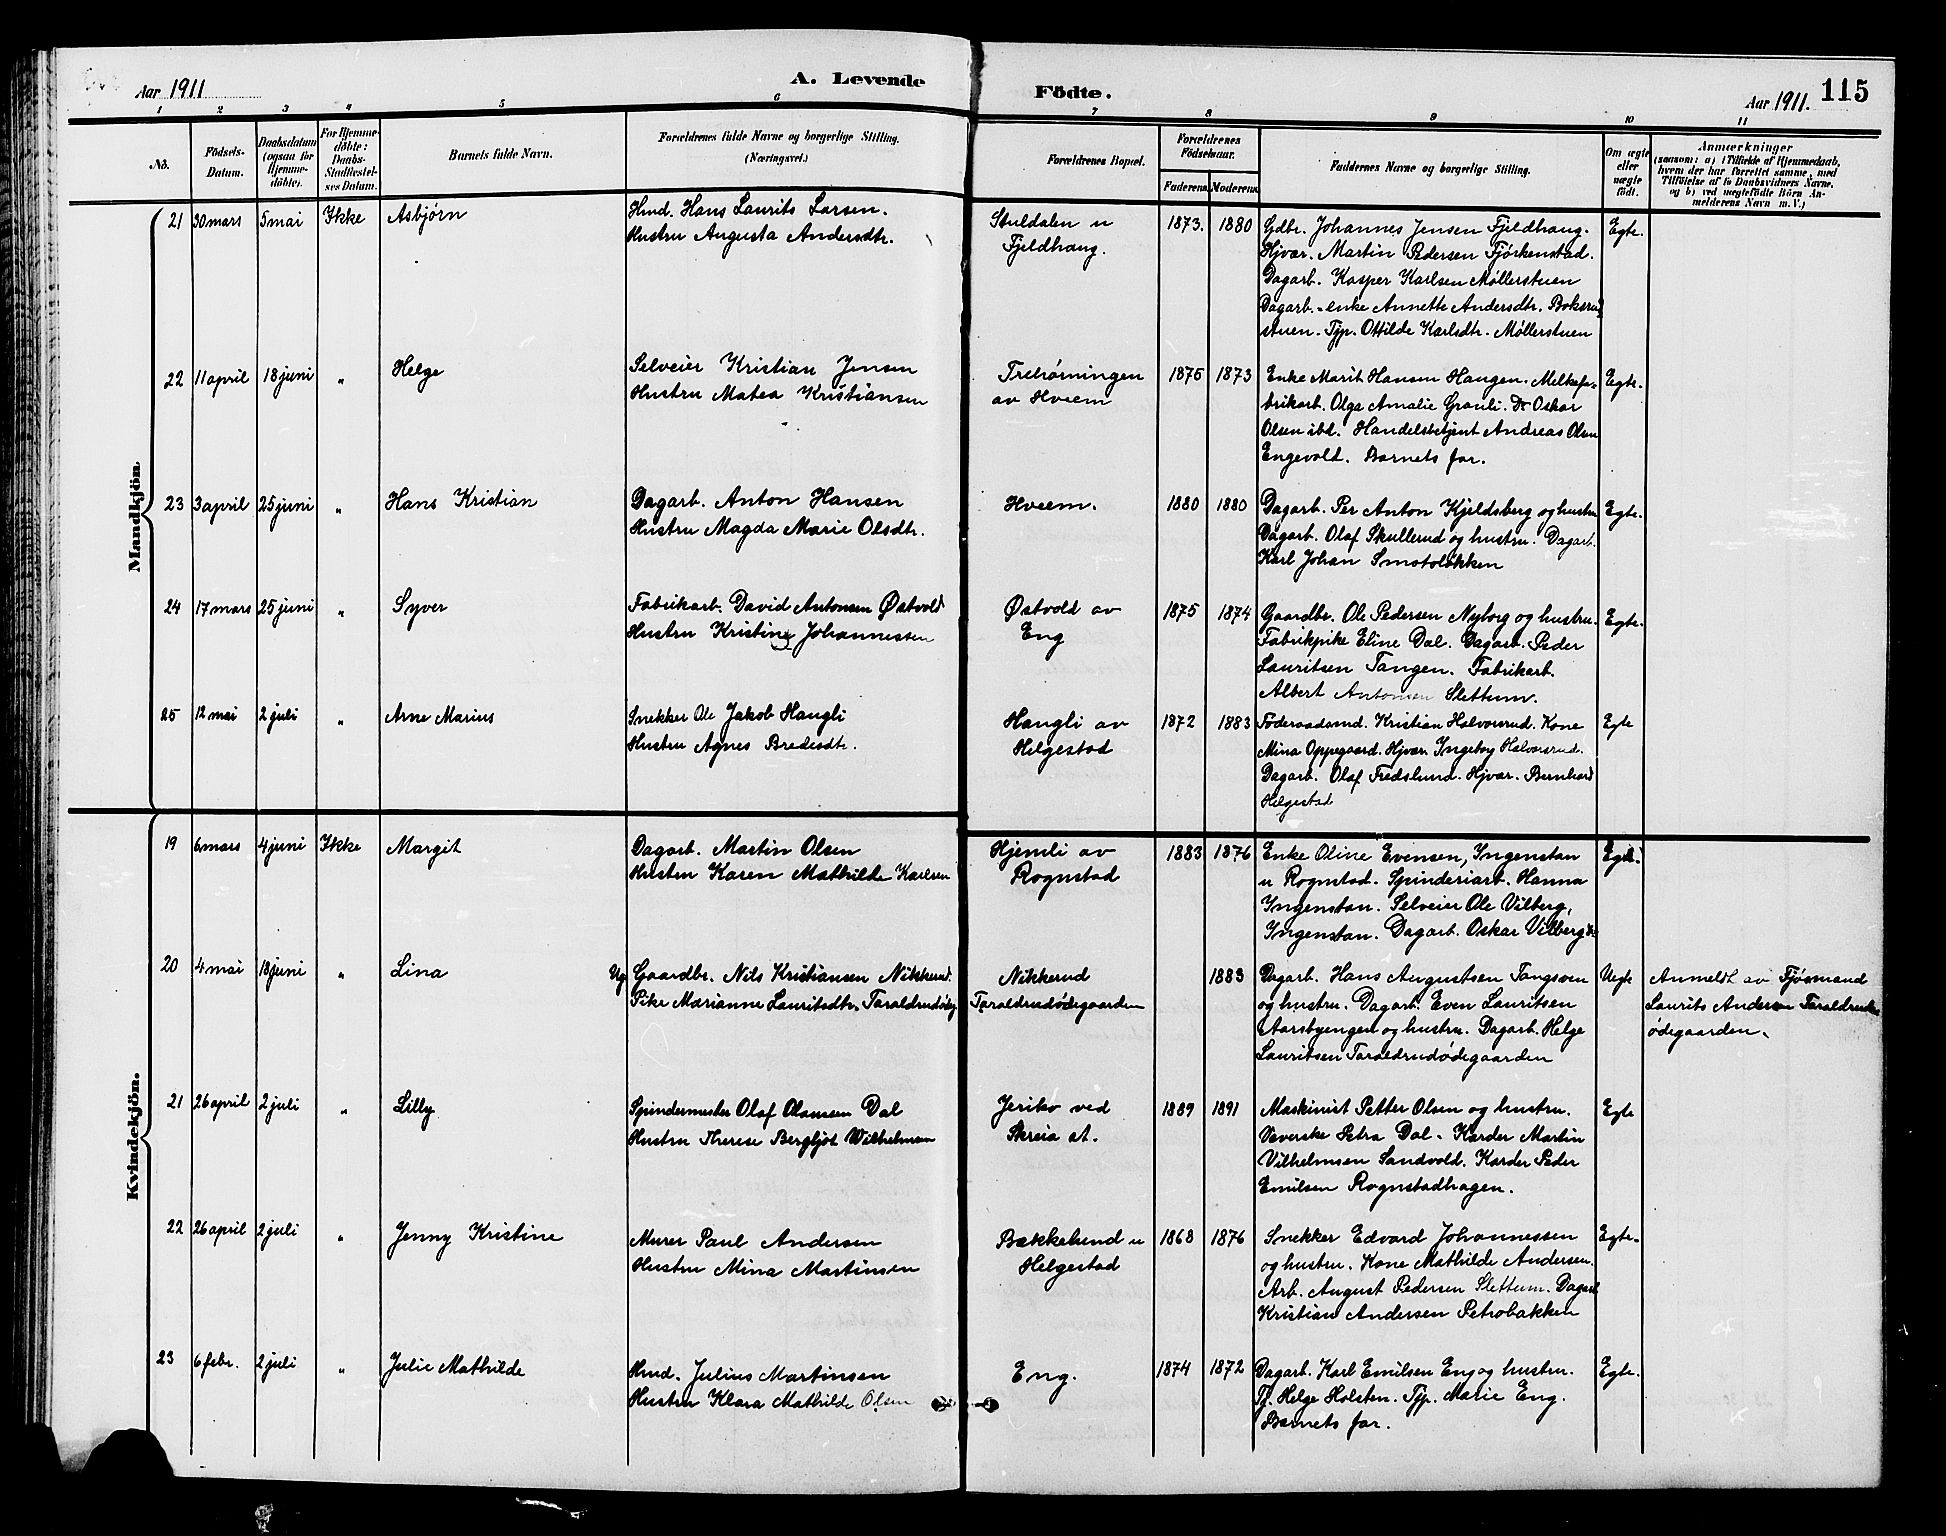 Aar 1911
A. Levende
Födte.
Aar 1911.
115
1 2 3 4 5 6 7 8 9 10 11
No.
Födsels-Datum.
Daabsdatum (ogsaa for Hjemme-döbte).
For Hjemme-döbte: Daabs-Stadfæstel-ses Datum.
Barnets fulde Navn.
Forældrenes fulde Navne og borgerlige Stilling.
(Næringsvei.)
Forældrenes Bopæl.
Forældrenes Födselsaar.
Faderens. Moderens.
Faddernes Navne og borgerlige Stilling.
Om ægte eller uægte födt.
Anmærkninger
(saasom: a) i Tilfælde af Hjemmedaab,
hvem der har forrettet samme, med
Tilföielse af to Daabsvidners Navne,
og b) ved uægtefödte Börn An-
melderens Navn m. V.)
Mandkjön.
21 30 mars 5 mai Ikke Asbjørn
Hmd. Hans Laurits Larsen.
Hustru Augusta Andersdtr.
Stuldalen u
Fjeldhaug.
1873. 1880
Gdbr. Johannes Jensen Fjeldhaug.
Hjvær. Martin Pedersen Fjørkenstad.
Dagarb. Kasper Karlsen Møllerstuen
Dagarb.-enke Annette Andersdtr. Boksrud
stuen. Tjp. Ottilde Karlsdtr. Møllerstuen
Egte.
22 11 april 18 juni " Helge
Selveier Kristian Jensen
Hustru Matea Kristiansen
Trehørningen
av Hveem
1875 1873
Enke Marit Hansen Haugen. Melkefa-
brikarb. Olga Amalie Granli. Do Oskar
Olsen ibd. Handelsbetjent Andreas Olsen
Engevold. Barnets far.
Egte.
23 3 april 25 juni " Hans Kristian
Dagarb. Anton Hansen
Hustru Magda Marie Olsdtr.
Hveem.
1880 1880
Dagarb. Per Anton Kjeldsberg og hustru
Dagarb. Olaf Skullerud og hustru. Dagarb.
Karl Johan Smstoløkken
Egte.
24 17 mars 25 juni " Syver
Fabrikarb. David Antonsen Østvold
Hustru Kristine Johannessen
Østvold av
Eng
1875 1874
Gaardbr. Ole Pedersen Nyborg og hustru.
Fabrikpike Eline Dal. Dagarb. Peder
Lauritsen Tangen. Fabrikarb.
Albert Antonsen Slettum.
Egte.
25 12 mai 2 juli " Arne Marius
Snekker Ole Jakob Haugli
Hustru Agnes Bredesdtr.
Haugli av
Helgestad
1872 1883
Føderaadsmd. Kristian Halvorsrud. Kone
Mina Oppegaard. Hjvær. Ingeborg Halvorsrud.
Dagarb. Olaf Fredslund. Hjvær. Bernhard
Helgestad
Egte
Kvindekjön.
19 6 mars 4 juni Ikke Margit
Dagarb. Martin Olsen
Hustru Karen Mathilde Karlsen
Hjemli av
Rognstad
1883 1876
Enke Oline Evensen, Ingenstan
u Rognstad. Spinderiarb. Hanna
Ingenstan. Selveier Ole Vilberg,
Ingenstan. Dagarb. Oskar Vilberg
Egte.
20 4 mai 18 juni " Lina
Ug Gaardbr. Nils Kristiansen Nikkerud.
Pike Marianne Lauritsdtr. Taraldrudødeg
Nikkerud
Taraldrudødegaarden
1883
Dagarb. Hans Augustsen Tangsven
og hustru. Dagarb. Even Lauritsen
Aarsbyengen og hustru. Dagarb. Helge
Lauritsen Taraldrudødegaarden
Uegte
Anmeldt av Fjøsmand
Laurits Andersen Taraldruds
ødegaarden.
21 26 april 2 juli " Lilly
Spindermester Olaf Olausen Dal
Hustru Therese Bergljot Wilhelmsen
Jeriko ved
Skreia st.
1889 1891
Maskinist Petter Olsen og hustru.
Veverske Petra Dal. Karder Martin
Vilhelmsen Sandvold. Karder Peder
Emilsen Rognstadhagen.
Egte
22 26 april 2 juli " Jenny Kristine
Murer Paul Andersen
Hustru Mina Martinsen
Bækkelund u
Helgestad
1868 1876
Snekker Edvard Johannessen
og hustru. Kone Mathilde Andersen.
Arb. August Pedersen Slettum. Dagarb
Kristian Andersen Petrobakken
Egte.
23 6 febr. 2 juli " Julie Mathilde
Hmd. Julius Martinsen
Hustru Klara Mathilde Olsen
Eng.
1874 1872
Dagarb. Karl Emilsen Eng og hustru.
Tj. Helge Holsten. Tjp. Marie Eng.
Barnets far.
Egte.